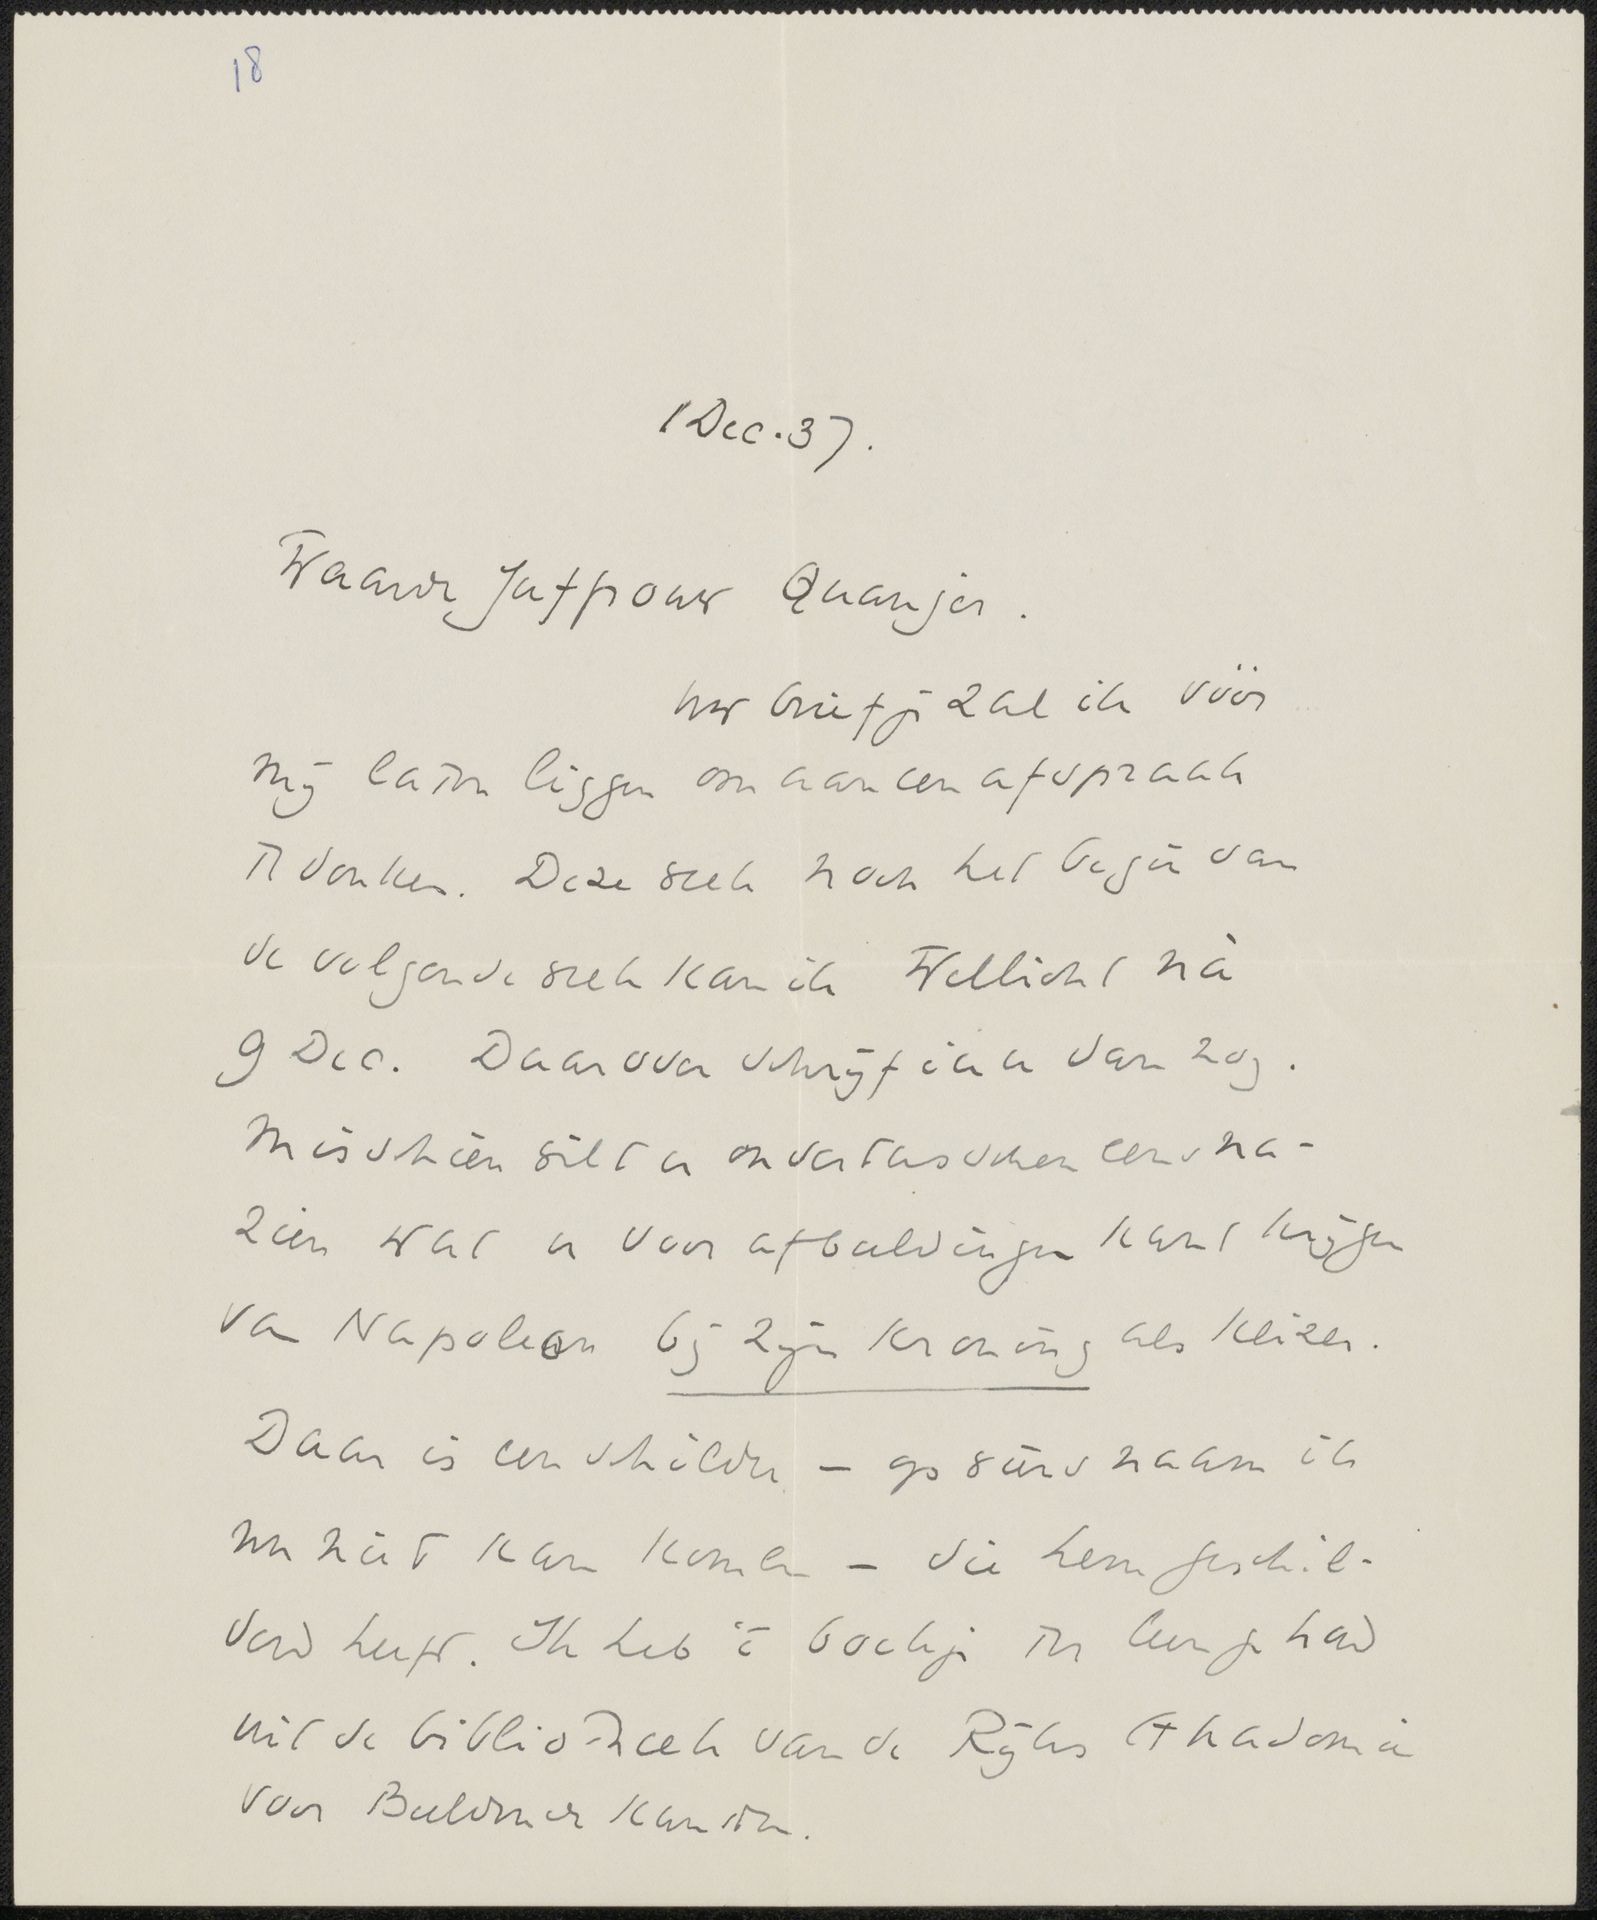 18
1 Dec. 37.
Waarde Juffrouw Quanjer.
Uw briefje zal ik vóór
mij laten liggen om aan een afspraak
te denken. Deze week noch het begin van
de volgende week kan ik Wellicht ná
9 Dec. Daarover schrijf ik u dan nog.
Misschien wilt u ondertusschen eens na-
zien wat u voor afbeeldingen kunt krijgen
van Napoleon bij zijn kroning als keizer.
Daar is een schilder – op wiens naam ik
nu niet kan komen – die hem geschil-
derd heeft. Ik heb 't boekje ter leen gehad
uit de bibliotheek van de Rijks Akademie
voor Beeldende Kunsten.